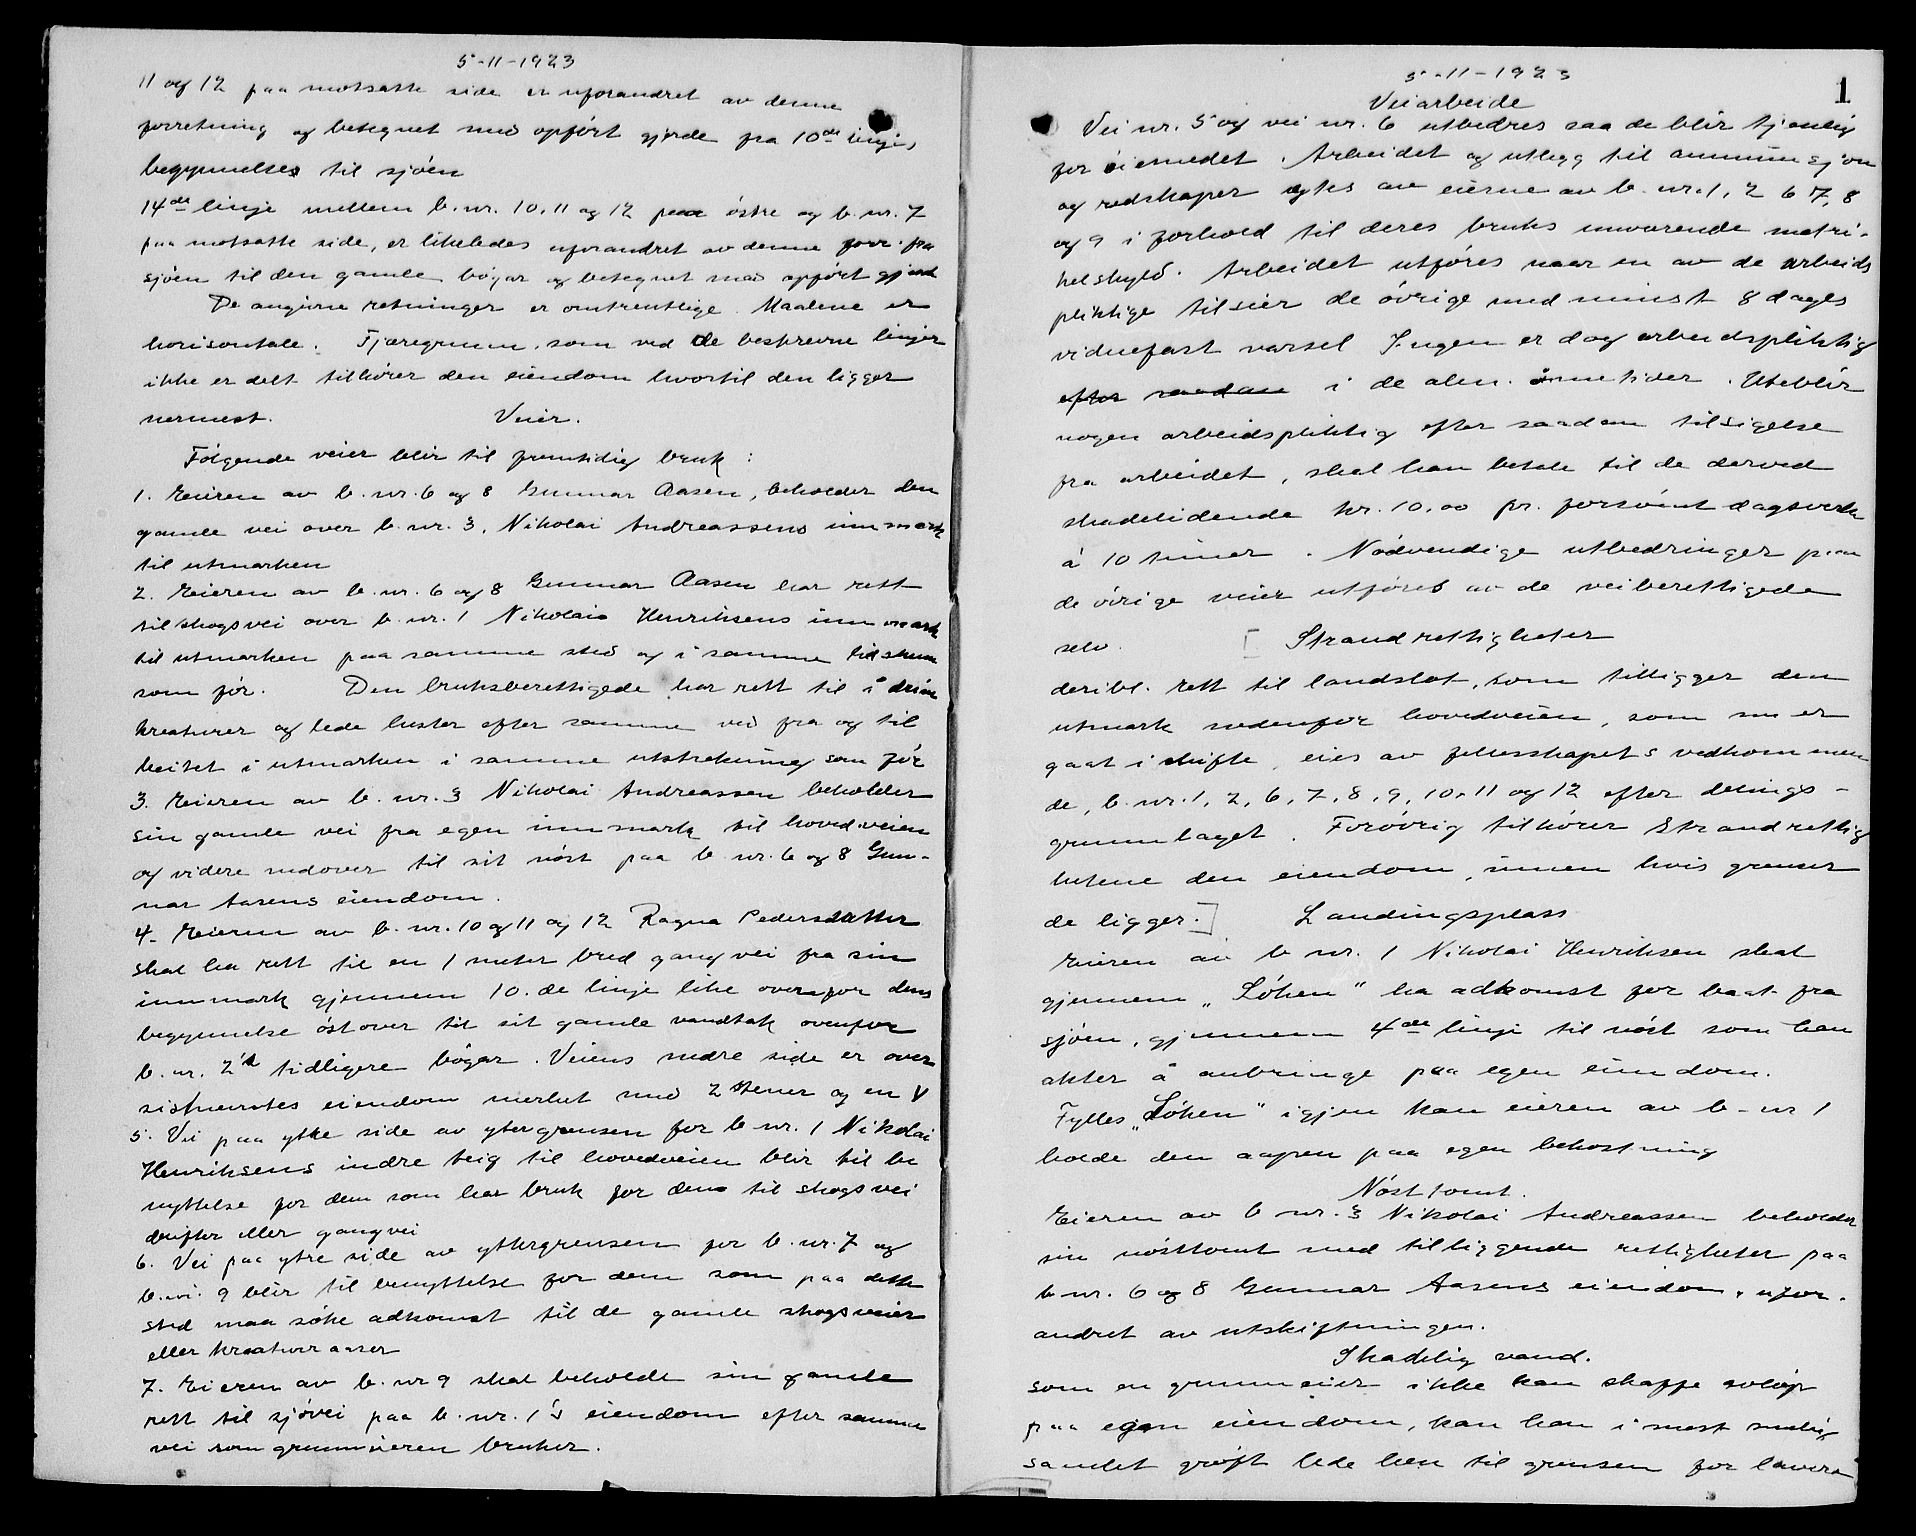 5-11-1923
11 og 12 paa motsatte side er uforandret av denne
forretning og betegnet med opført gjerde fra 10de linjes
begynnelse til sjøen
14de linje mellem b.nr. 10, 11 og 12 paa østre og b.nr. 7
paa motsatte side, er likeledes uforandret av denne forr. fra
sjøen til den gamle bøgar og betegnet med opført gjerde
De angivne retninger er omtrentlige. Maalene er
horisontale. Fjæregrunn, som ved de beskrevne linjer
ikke er delt tilhører den eiendom hvortil den ligger
nermest. Veier.
Følgende veier blir til fremtidig bruk:
1. Eieren av b.nr. 6 og 8 Gunnar Aasen, beholder den
gamle vei over b.nr. 3, Nikolai Andreassens innmark
til utmarken
2. Eieren av b.nr. 6 og 8 Gunnar Aasen har rett
til skogsvei over b.nr. 1 Nikolai Henriksens innmark
til utmarken paa samme sted og i samme tidsrum
som før. Den bruksberettigede har rett til å drive
kreaturer og lede hester efter samme vei fra og til
beitet i utmarken i samme utstrekning som før
3. Eieren av b.nr. 3 Nikolai Andreassen beholder
sin gamle vei fra egen innmark til hovedveien
og videre nedover til sit nøst paa b.nr. 6 og 8 Gun-
nar Aasens eiendom.
4. Eieren av b.nr. 10 og 11 og 12 Ragna Pedersdatter
skal ha rett til en 1 meter bred gangvei fra sin
innmark gjennem 10.de linje like ovenfor dens
begynnelse østover til sit gamle vandtak ovenfor
b.nr. 2's tidligere bøgar. Veiens nedre side er over
sistnevntes eiendom merket med 2 stener og en V
5. Vei paa ytre side av ytergrensen for b.nr. 1 Nikolai
Henriksens indre teig til hovedveien blir til be
nyttelse for dem som har bruk for den til skogsvei
drifter eller gangvei
6. Vei paa ytre side av yttergrensen for b.nr. 7 og
b.nr. 9 blir til benyttelse for dem som paa dette
sted maa søke adkomst til de gamle skogsveier
eller kreaturraaser
7. Eieren av b.nr 9 skal beholde sin gamle
rett til sjøvei paa b.nr. 1's eiendom efter samme
vei som grunneieren bruker.
5-11-1923
1
Veiarbeide
Vei nr. 5 og vei nr. 6 utbedres saa de blir tjenlig
for øiemedet. Arbeidet og utlegg til ammunisjon
og redskaper ydes av eierne av b.nr. 1, 2 6 7, 8
og 9 i forhold til deres bruks nuværende matri-
kelskyld. Arbeidet utføres naar en av de arbeids
pliktige tilsier de øvrige med minst 8 dages
vidnefast varsel Ingen er dog arbeidspliktig
efter saadan i de alm. ånnetider. Uteblir
nogen arbeidspliktig efter saadan tilsigelse
fra arbeidet, skal han betale til de derved
skadelidende kr. 10,00 pr. forsømt dagsverk
à 10 timer. Nødvendige utbedringer paa
de øvrige veier utføres av de veiberettigede
selv. [ Strandrettigheter
deribl. rett til landslot, som tilligger den
utmark nedenfor hovedveien, som nu er
gaat i skifte, eies av fellesskapets vedkommen
de, b.nr. 1, 2, 6, 7, 8, 9, 10, 11 og 12 efter delings-
grunnlaget. Forøvrig tilhører strandrettig
hetene den eiendom, innen hvis grenser
de ligger.] Landingsplass
Eieren av b nr. 1 Nikolai Henriksen skal
gjennem "Løken" ha adkomst for baat fra
sjøen, gjennem 4de linje til nøst som han
akter å anbringe paa egen eiendom.
Fylles "Løken" igjen kan eieren av b-nr 1
holde den aapen paa egen bekostning
Nøsttomt.
Eieren av b nr. 3 Nikolai Andreassen beholder
sin nøsttomt med tilliggende rettigheter paa
b nr. 6 og 8 Gunnar Aasens eiendom, ufor-
andret av utskiftningen.
Skadelig vand.
som en grunneier ikke kan skaffe avløp
paa egen eiendom, kan han i mest mulig
samlet grøft lede hen til grensen for lavere